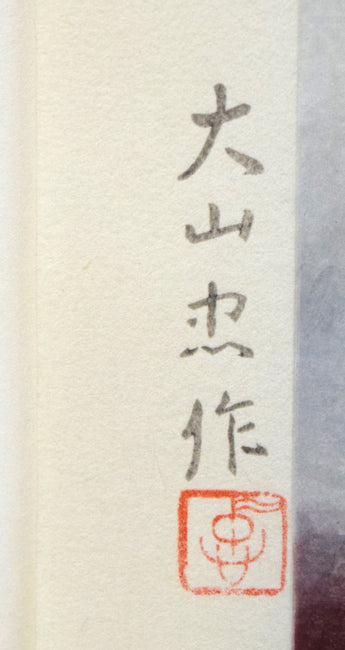 大山忠作